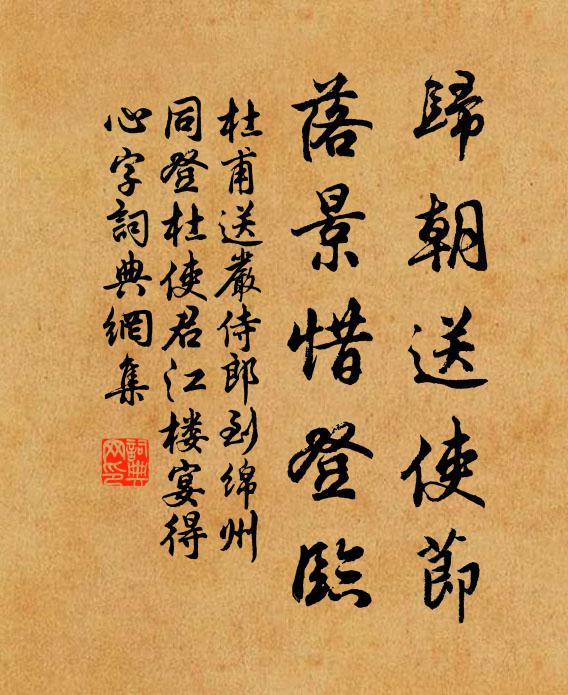 歸朝送使節
落景惜登臨
杜甫送嚴侍郎到绵州
同登杜使君江楼宴得
心字詞典網集
詞典
网印